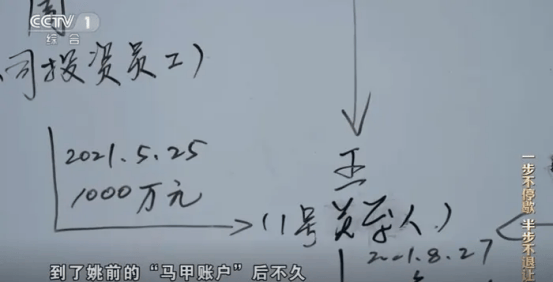 CCTV 1
综合
司投资员工)
2021.5.25
1000万元
王
(1号
人)
2021.8.27
一步不停歇 半步不退让
到了姚前的“马甲账户”后不久